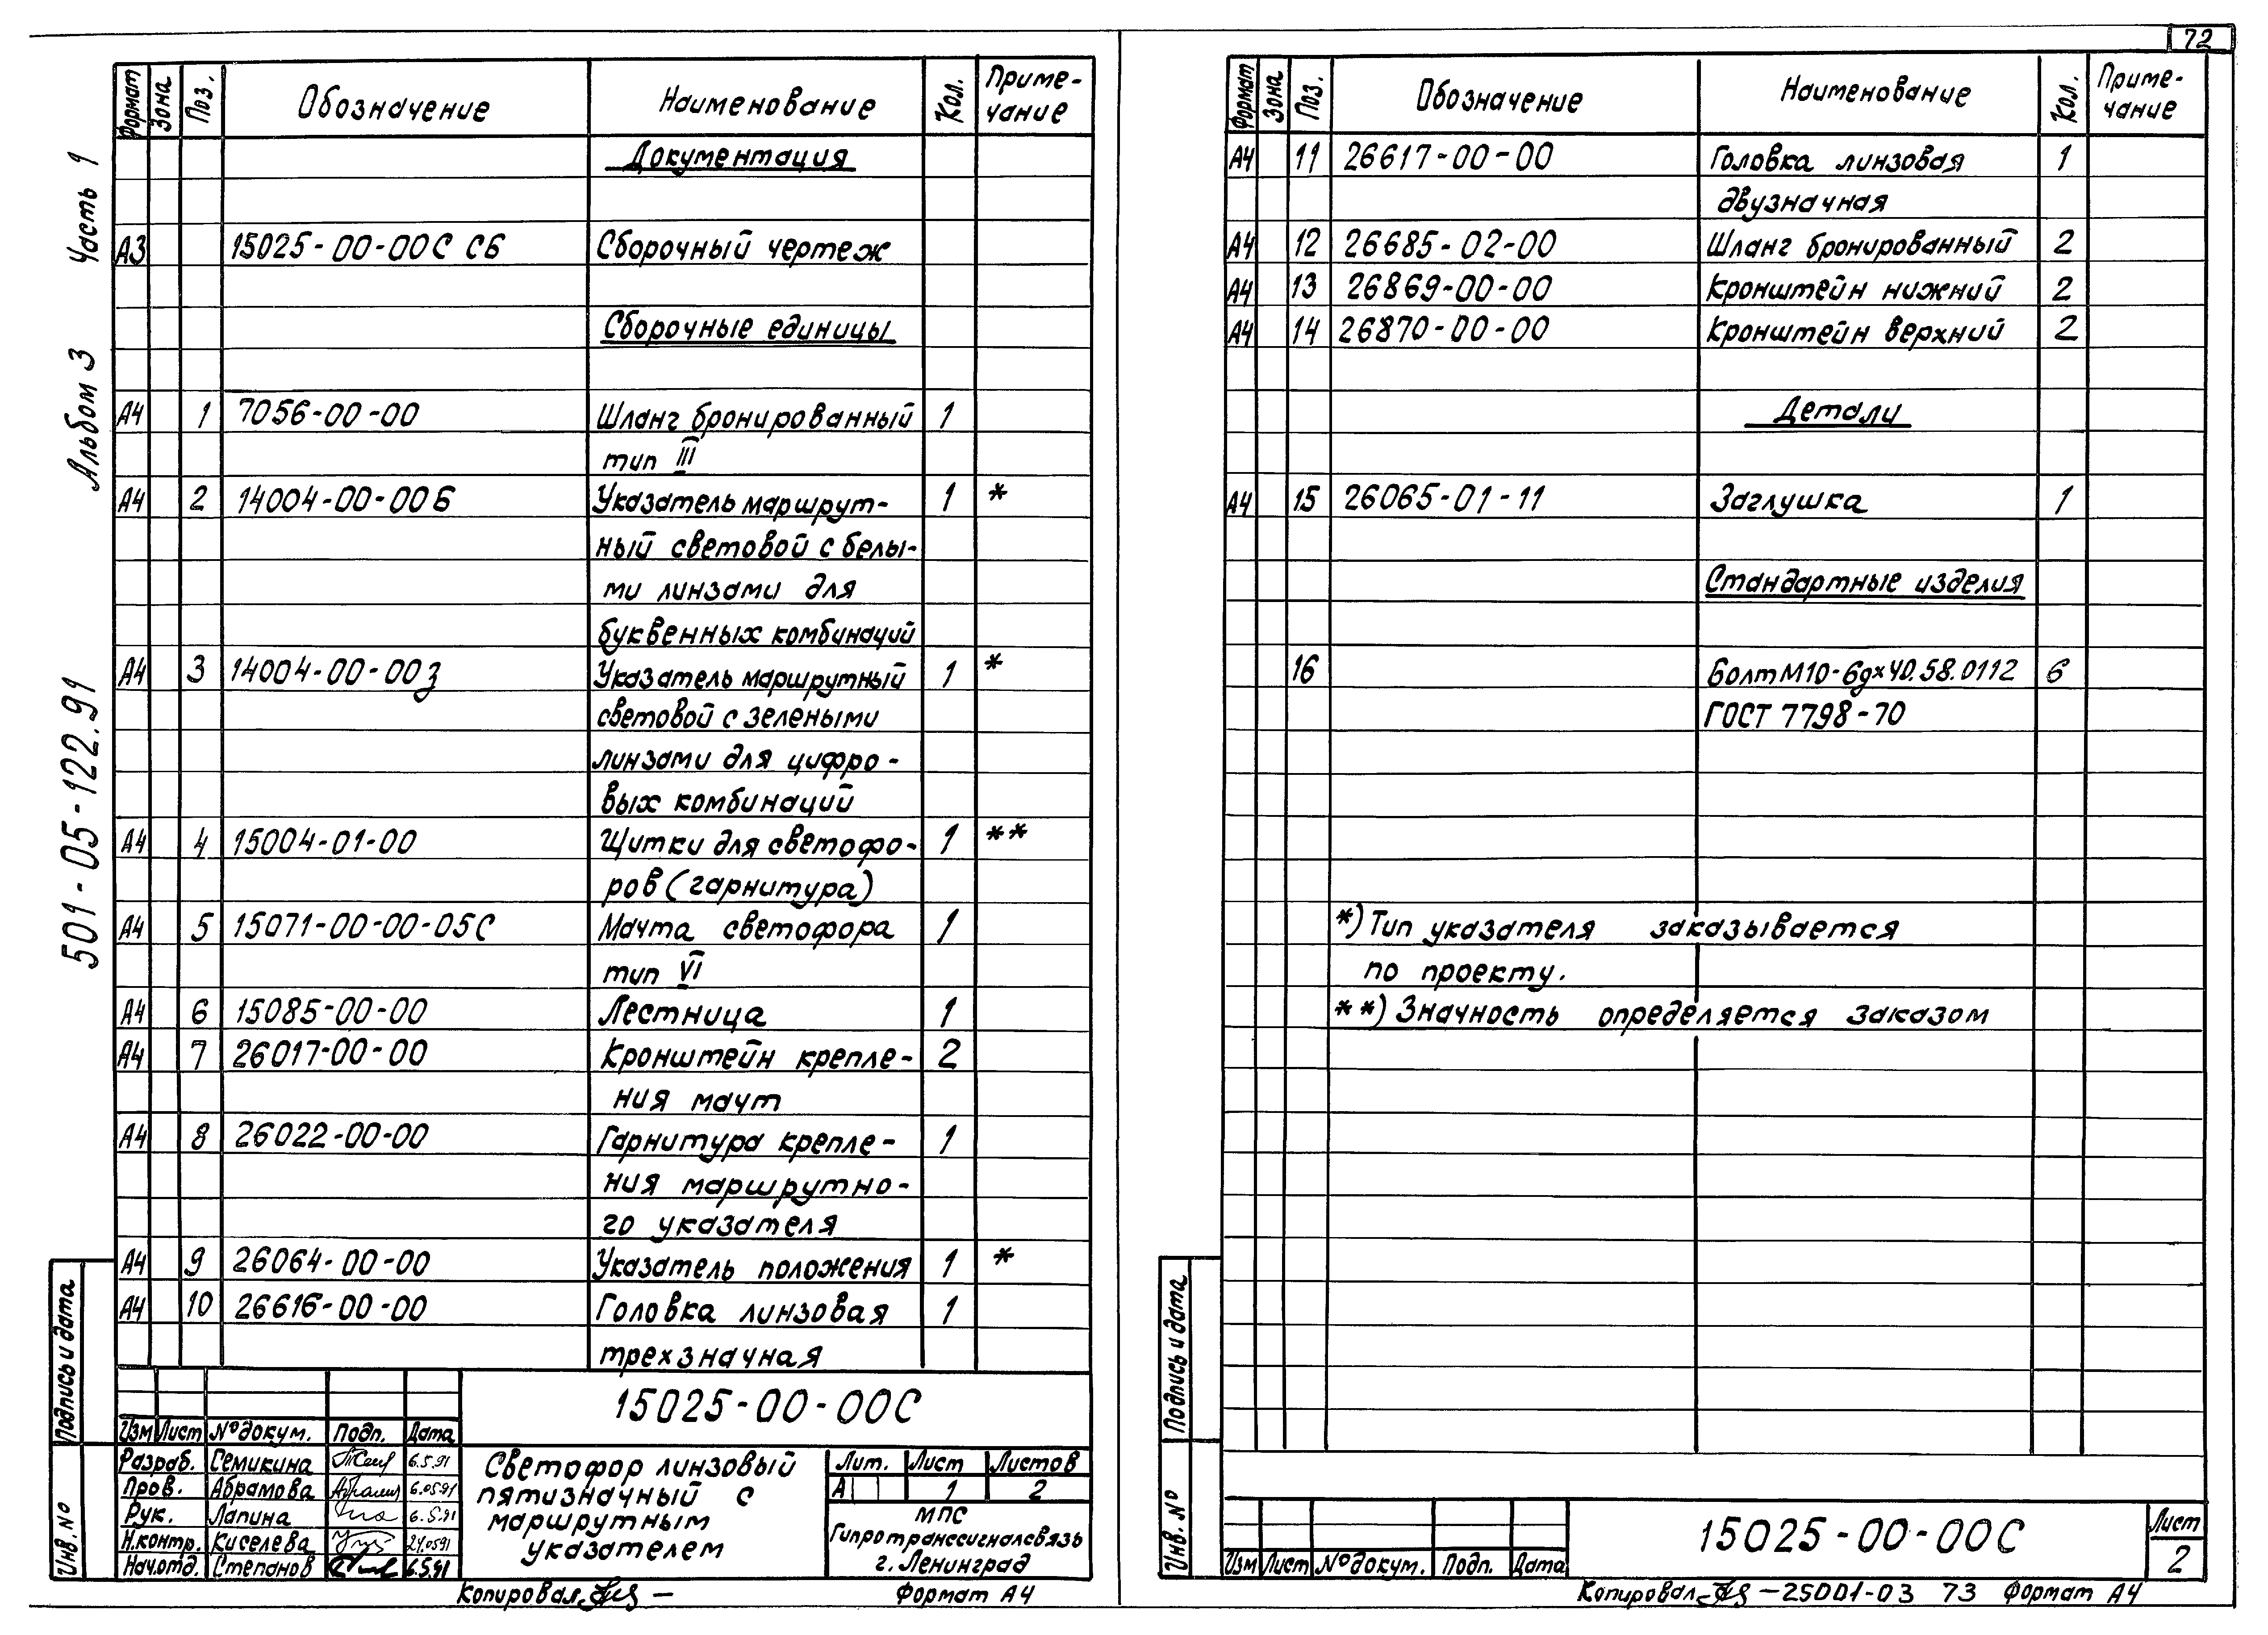 72
Альбом 3 Часть 1
501-05-122.91
Формат Зона Поз. Обозначение Наименование Кол. Приме-
чание
Документация
А3 15025-00-00С СБ Сборочный чертеж
Сборочные единицы
А4 1 7056-00-00 Шланг бронированный 1
тип III
А4 2 14004-00-00Б Указатель маршрут- 1 *
ный световой с белы-
ми линзами для
буквенных комбинаций
А4 3 14004-00-00з Указатель маршрутный 1 *
световой с зелеными
линзами для цифро-
вых комбинаций
А4 4 15004-01-00 Щитки для светофо- 1 **
ров (гарнитура)
А4 5 15071-00-00-05С Мачта светофора 1
тип VI
А4 6 15085-00-00 Лестница 1
А4 7 26017-00-00 Кронштейн крепле- 2
ния мачт
А4 8 26022-00-00 Гарнитура крепле- 1
ния маршрутно-
го указателя
А4 9 26064-00-00 Указатель положения 1 *
А4 10 26616-00-00 Головка линзовая 1
трехзначная
Подпись и дата
Инв. №
15025-00-00С
Изм Лист № докум. Подп. Дата
Разраб. Семикина 6.5.91
Пров. Абрамова 6.05.91
Рук. Лапина 6.5.91
Н.контр. Киселева 24.0591
Нач.отд. Степанов 6.5.91
Светофор линзовый
пятизначный с
маршрутным
указателем
Лит. Лист Листов
А 1 2
МПС
Гипротранссигналсвязь
г. Ленинград
Копировал Формат А4
Формат Зона Поз. Обозначение Наименование Кол. Приме-
чание
А4 11 26617-00-00 Головка линзовая 1
двузначная
А4 12 26685-02-00 Шланг бронированный 2
А4 13 26869-00-00 Кронштейн нижний 2
А4 14 26870-00-00 Кронштейн верхний 2
Детали
А4 15 26065-01-11 Заглушка 1
Стандартные изделия
16 Болт М10-6gх40.58.0112 6
ГОСТ 7798-70
*) Тип указателя заказывается
по проекту.
**) Значность определяется заказом
Подпись и дата
Инв. №
Изм Лист № докум. Подп. Дата
15025-00-00С
Лист
2
Копировал - 25001-03 73 Формат А4